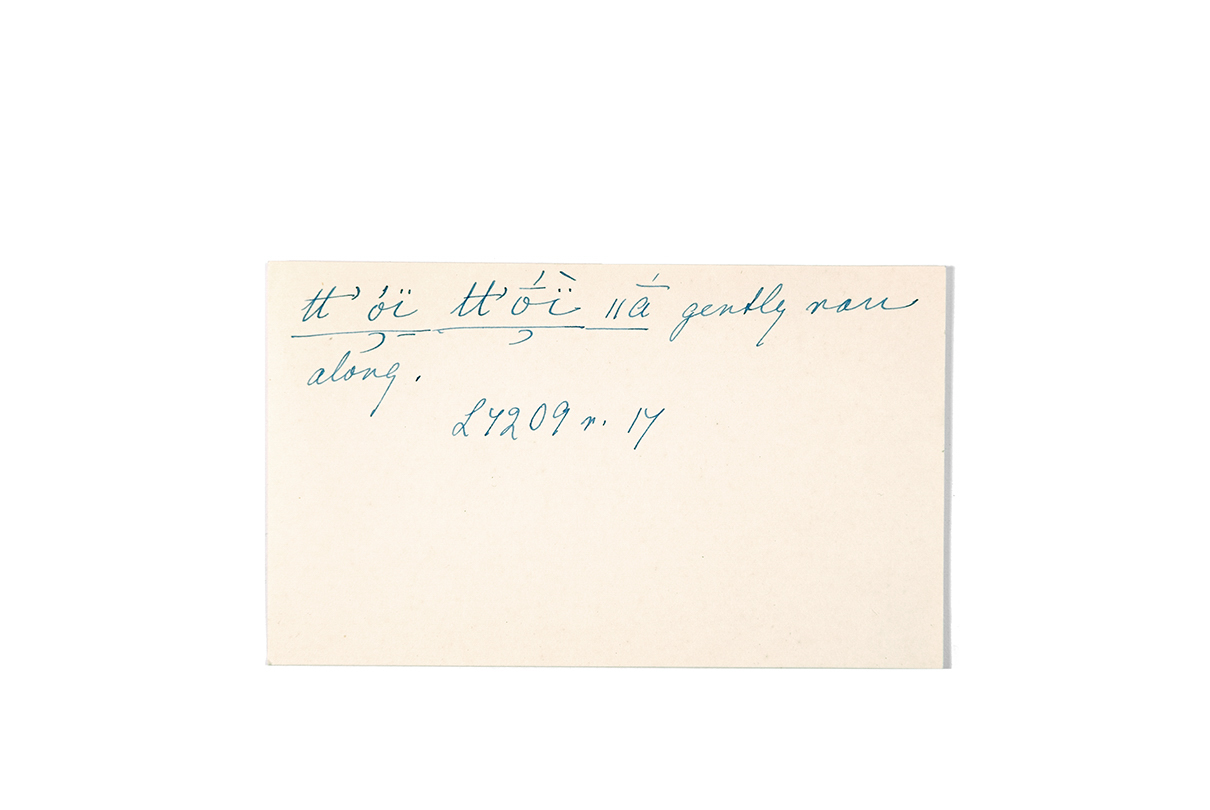 tt' ǫ́ï tt' ǭ̨́ï̀ ǁā́ gently ran
along.
L7209 r. 17